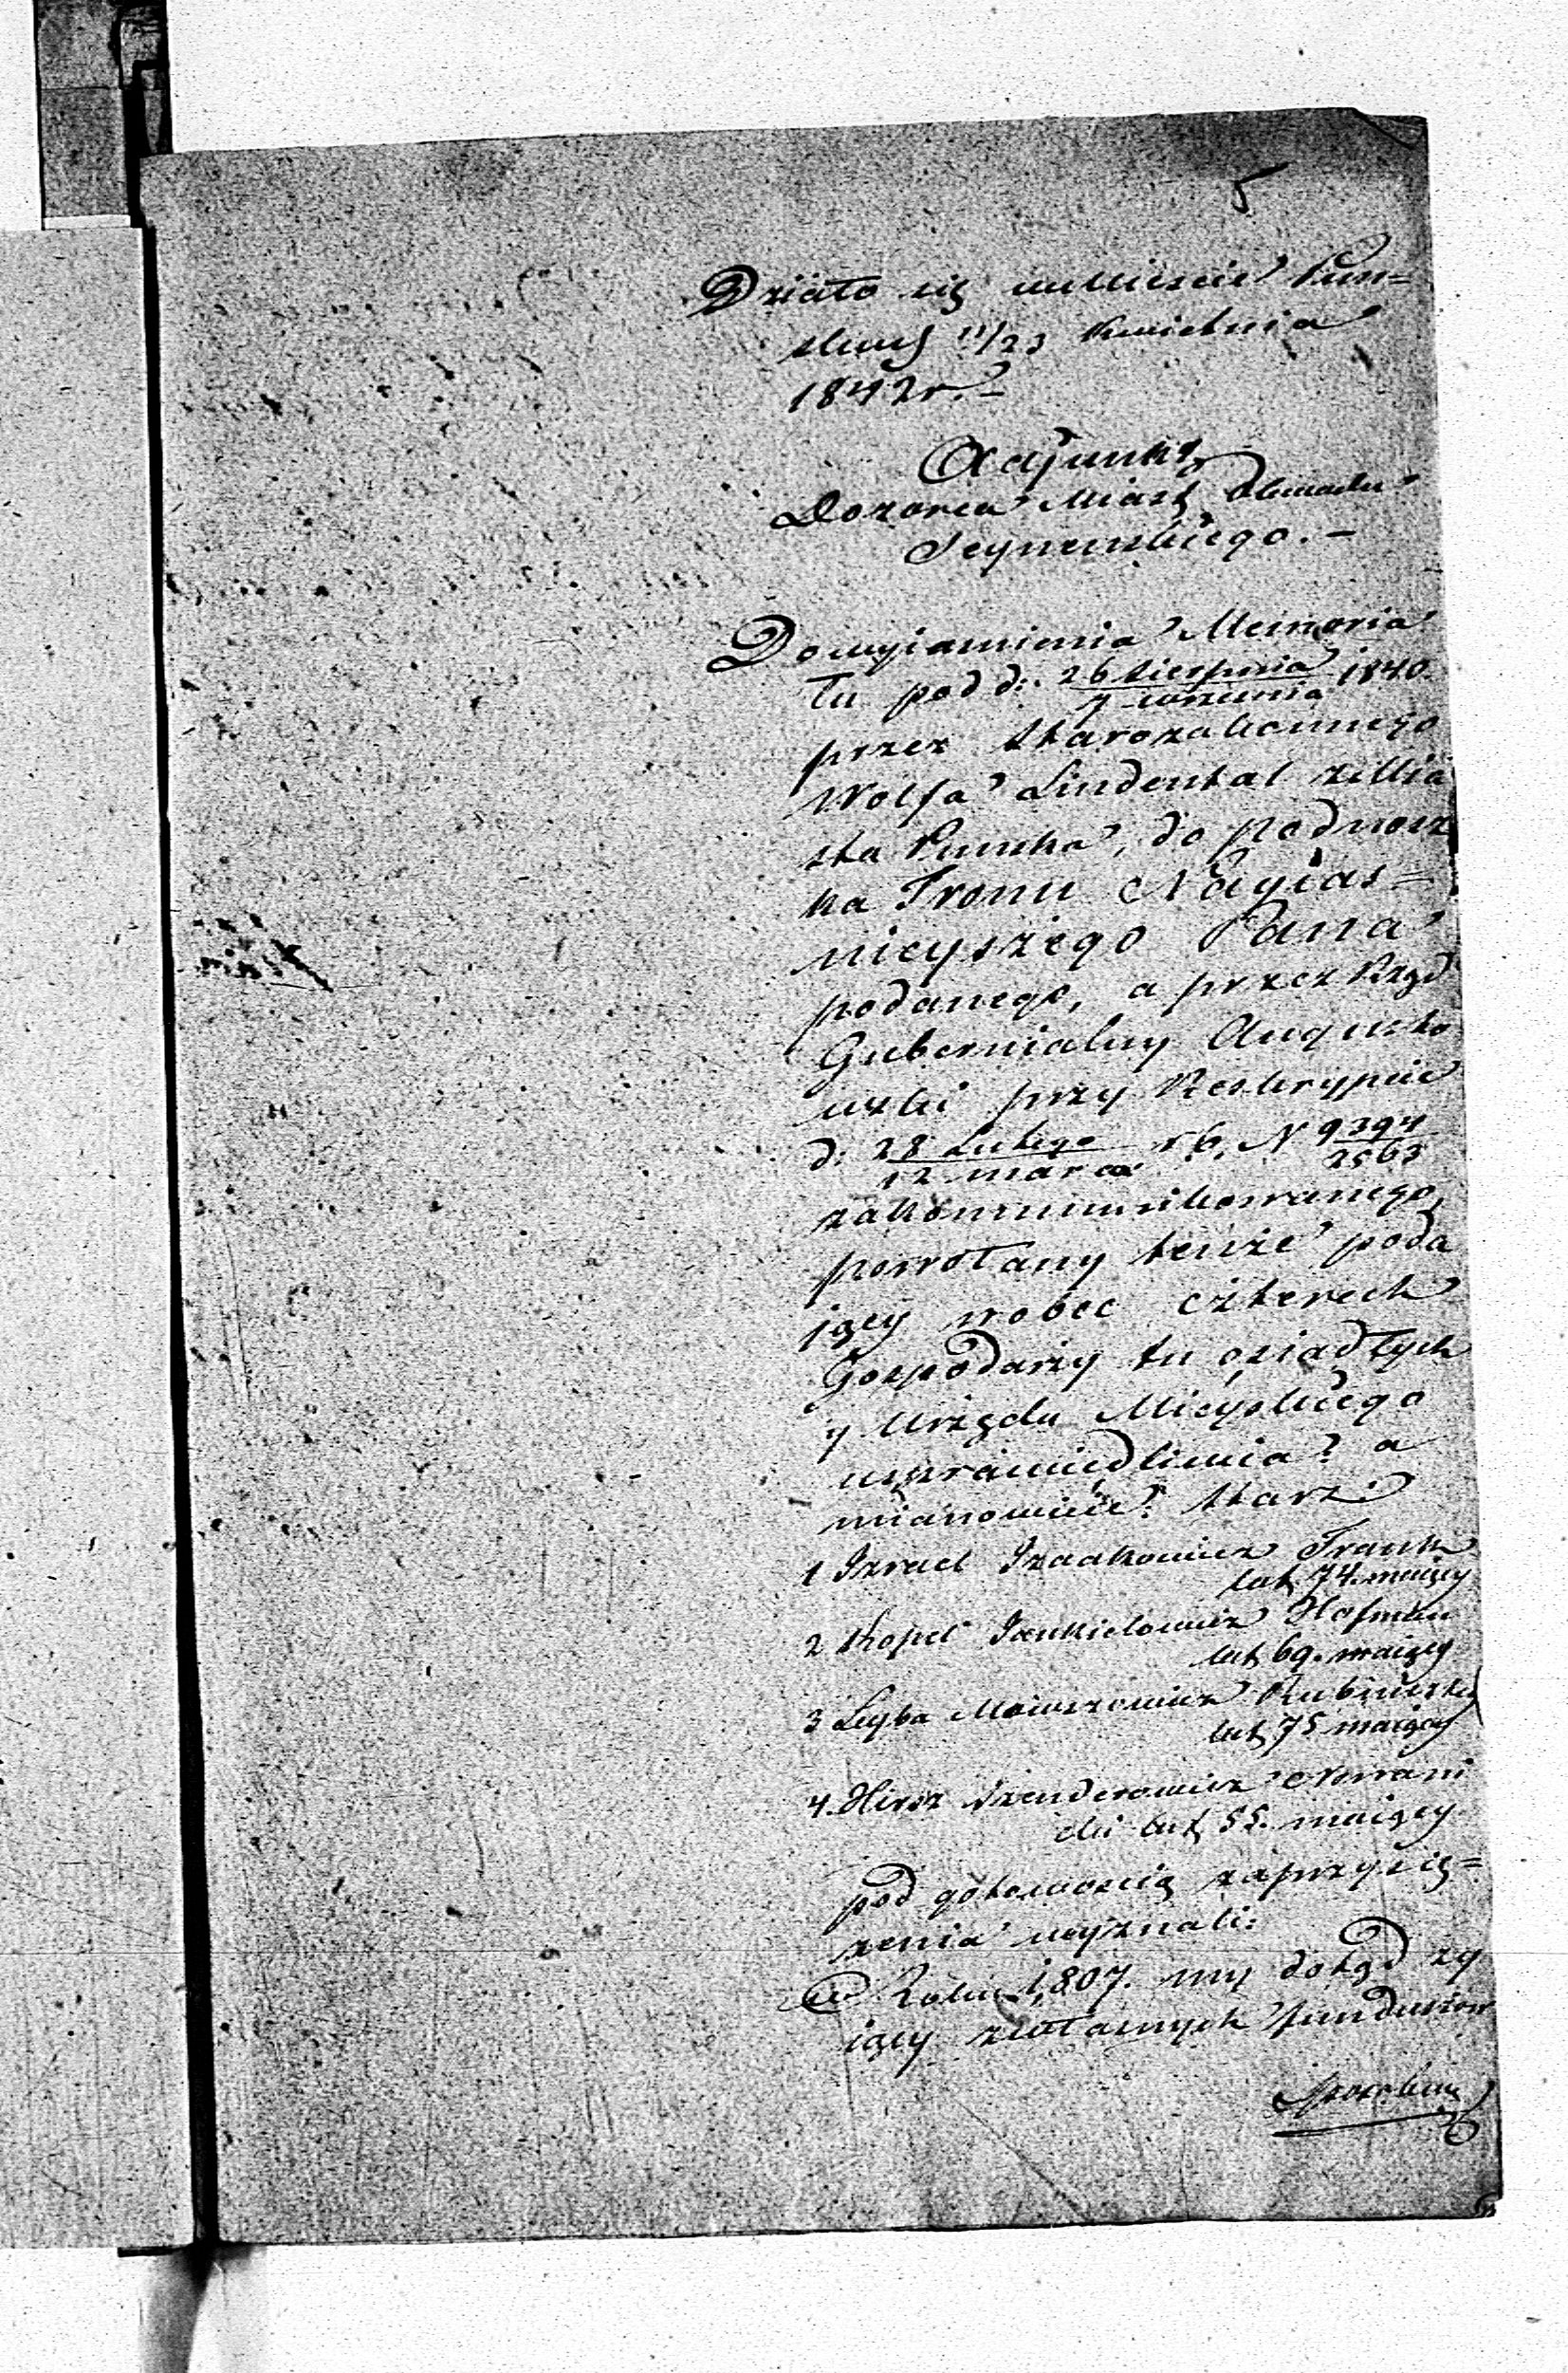 5
Działo się w Mieście Pun-
sku d 11/23 Kwietnia
1842 r. –
Adjunkt
Dozorca Miast Obwodu
Seynenskiego. –
Do wyiasnienia Memoria
łu pod d: 26 Sierpnia / 7 września 1840.
przez starozakonnego
Wolfa Lindental z Mia
sta Punska, do podnoz
ka Tronu Nayias=
nieyszego Pana
podanego, a przez Rząd
Gubernialny Augusto
wski przy Reskrypcie
d: 28 Lutego / 12 marca r b. N 9394 / 2563
zakommunikowanego,
powołany tenże poda
iący wobec czterech
Gospodarzy tu osiadłych
y Urzędu Mieyskiego
usprawiedliwia? a
mianowicie: starz:
1 Izrael Izaakowicz Frank
lat 74. maiący
2 Kopel Jankielowicz Hofman
lat 69. maiący
3 Leyba Mowszowicz Rubinsztey
lat 75 maiący
4. Hirsz Szenderowicz Nowawi
cki lat 55. maiący
pod gotowością zaprzysię=
żenia wyznali:
W Roku 1807. my dotąd ży
iący z własnych funduszow